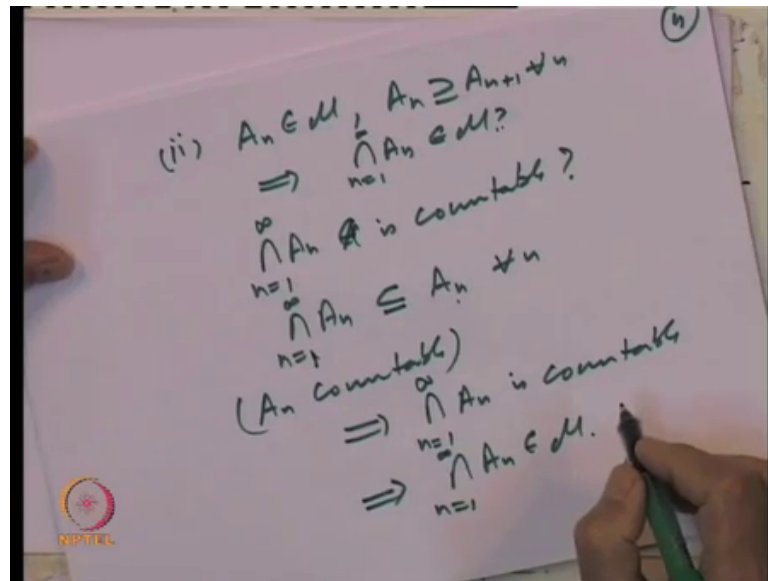 (4)
(ii) An ∈ M, An ⊇ An+1 ∀ n
⟹ ∩ An ∈ M?
n=1
∞
∩ An is countable?
n=1
∞
∩ An ⊆ An ∀ n
n=1
(An countable)
∞
⟹ ∩ An is countable
n=1
∞
⟹ ∩ An ∈ M.
n=1
NPTEL